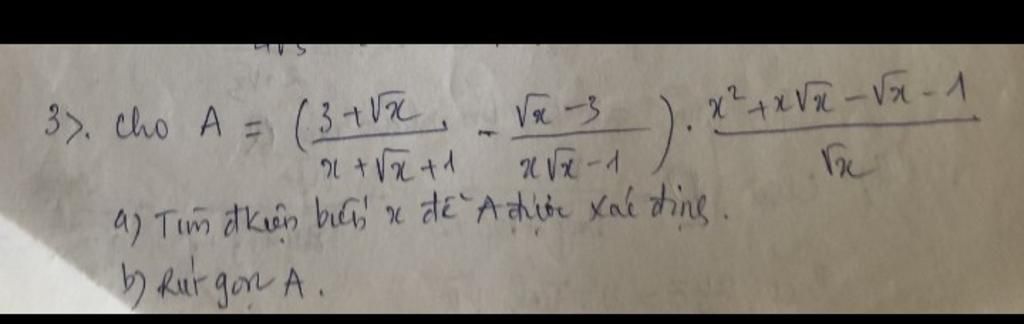 3>. Cho A = (3+√x / x+√x+1 - √x-3 / x√x-1) . x²+x√x-√x-1 / √x
a) Tìm đkiện biến x để A được xác định.
b) Rút gọn A.